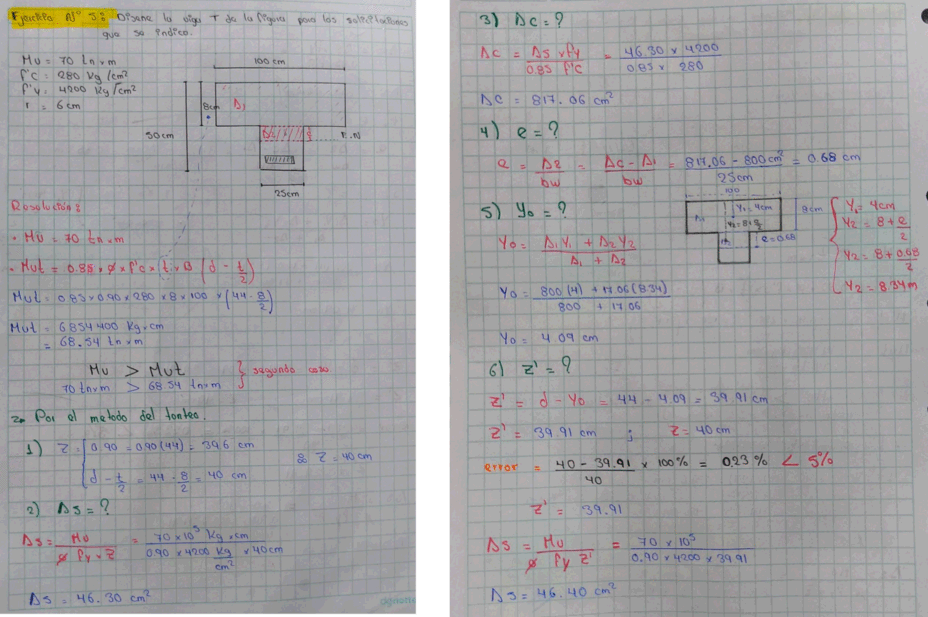 Ejercicio Nº 3: Diseñe la viga T de la figura para las solicitaciones
que se indico.
Mu = 70 tnxm
f'c = 280 kg/cm²
f'y = 4200 kg/cm²
r = 6cm
100 cm
8cm
A1
50cm
E.N
25cm
Resolución:
• Mu = 70 tnxm
• Mut = 0.85 x ø x f'c x t x B (d - t/2)
Mut = 0.85 x 0.90 x 280 x 8 x 100 x (44 - 8/2)
Mut = 6854400 Kgxcm
= 68.54 tnxm
Mu > Mut
70 tnxm > 68.54 tnxm } segundo caso
2. Por el metodo del tanteo.
1) Z = { 0.90 = 0.90(44) = 39.6 cm
d - t/2 = 44 - 8/2 = 40 cm
Z = 40cm
2) As = ?
As = Mu / ø fy x Z = 70 x 10⁵ Kgxcm / 0.90 x 4200 Kg/cm² x 40cm
As = 46.30 cm²
3) Ac = ?
Ac = As x fy / 0.85 f'c = 46.30 x 4200 / 0.85 x 280
Ac = 817.06 cm²
4) e = ?
e = A2 / bw = Ac - A1 / bw = 817.06 - 800cm² / 25cm = 0.68 cm
5) Yo = ?
100
A1
Y1 = 4cm
Y2 = 8 + e/2
e = 0.68
8cm
Y1 = 4cm
Y2 = 8 + e/2
Y2 = 8 + 0.68/2
Y2 = 8.34m
Yo = A1Y1 + A2Y2 / A1 + A2
Yo = 800(4) + 17.06(8.34) / 800 + 17.06
Yo = 4.09 cm
6) Z' = ?
Z' = d - Yo = 44 - 4.09 = 39.91 cm
Z' = 39.91 cm ; Z = 40cm
error = 40 - 39.91 / 40 x 100% = 0.23% < 5%
Z' = 39.91
As = Mu / ø fy Z' = 70 x 10⁵ / 0.90 x 4200 x 39.91
As = 46.40 cm²